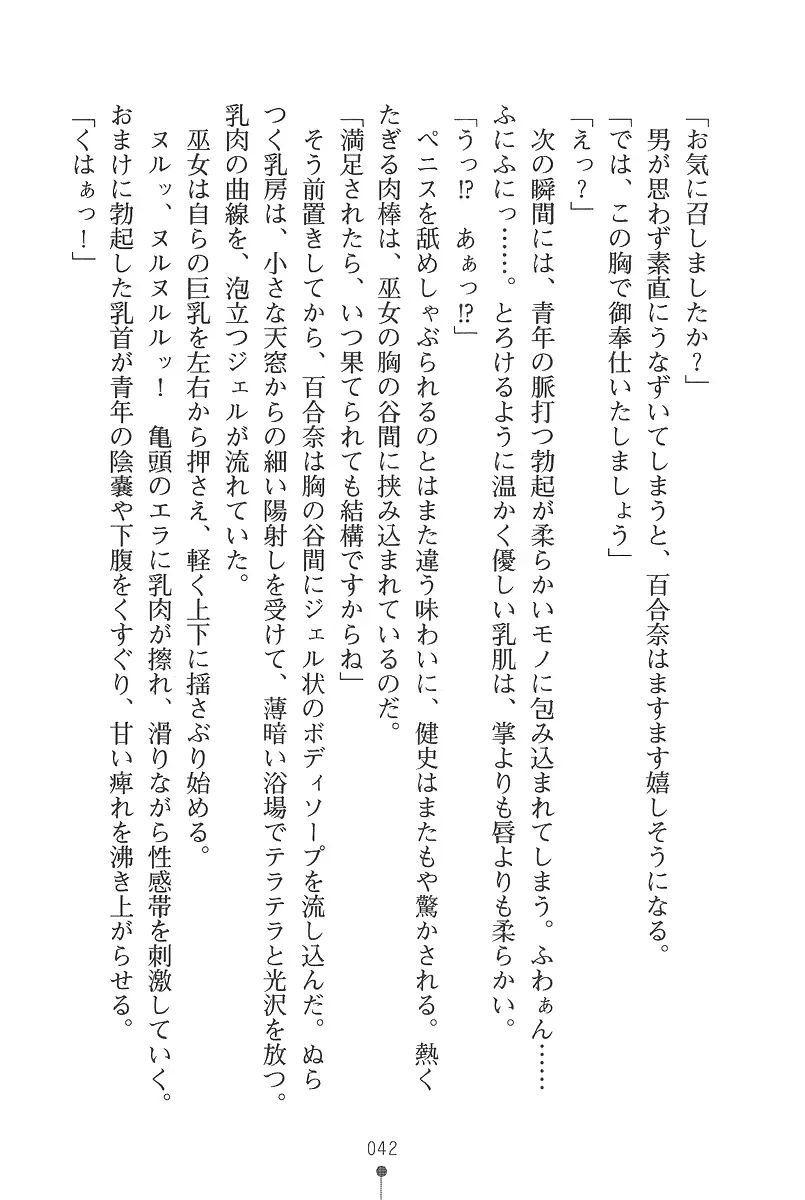 「お気に召しましたか？」
　男が思わず素直にうなずいてしまうと、百合奈はますます嬉しそうになる。
「では、この胸で御奉仕いたしましょう」
「えっ？」
　次の瞬間には、青年の脈打つ勃起が柔らかいモノに包み込まれてしまう。ふわぁん……
ふにふにっ……。とろけるように温かく優しい乳肌は、掌よりも唇よりも柔らかい。
「うっ!?　あぁっ!?」
　ペニスを舐めしゃぶられるのとはまた違う味わいに、健史はまたもや驚かされる。熱く
たぎる肉棒は、巫女の胸の谷間に挟み込まれているのだ。
「満足されたら、いつ果てられても結構ですからね」
　そう前置きしてから、百合奈は胸の谷間にジェル状のボディソープを流し込んだ。ぬら
つく乳房は、小さな天窓からの細い陽射しを受けて、薄暗い浴場でテラテラと光沢を放つ。
乳肉の曲線を、泡立つジェルが流れていた。
　巫女は自らの巨乳を左右から押さえ、軽く上下に揺さぶり始める。
　ヌルッ、ヌルヌルルッ！　亀頭のエラに乳肉が擦れ、滑りながら性感帯を刺激していく。
おまけに勃起した乳首が青年の陰嚢や下腹をくすぐり、甘い痺れを沸き上がらせる。
「くはぁっ！」
042